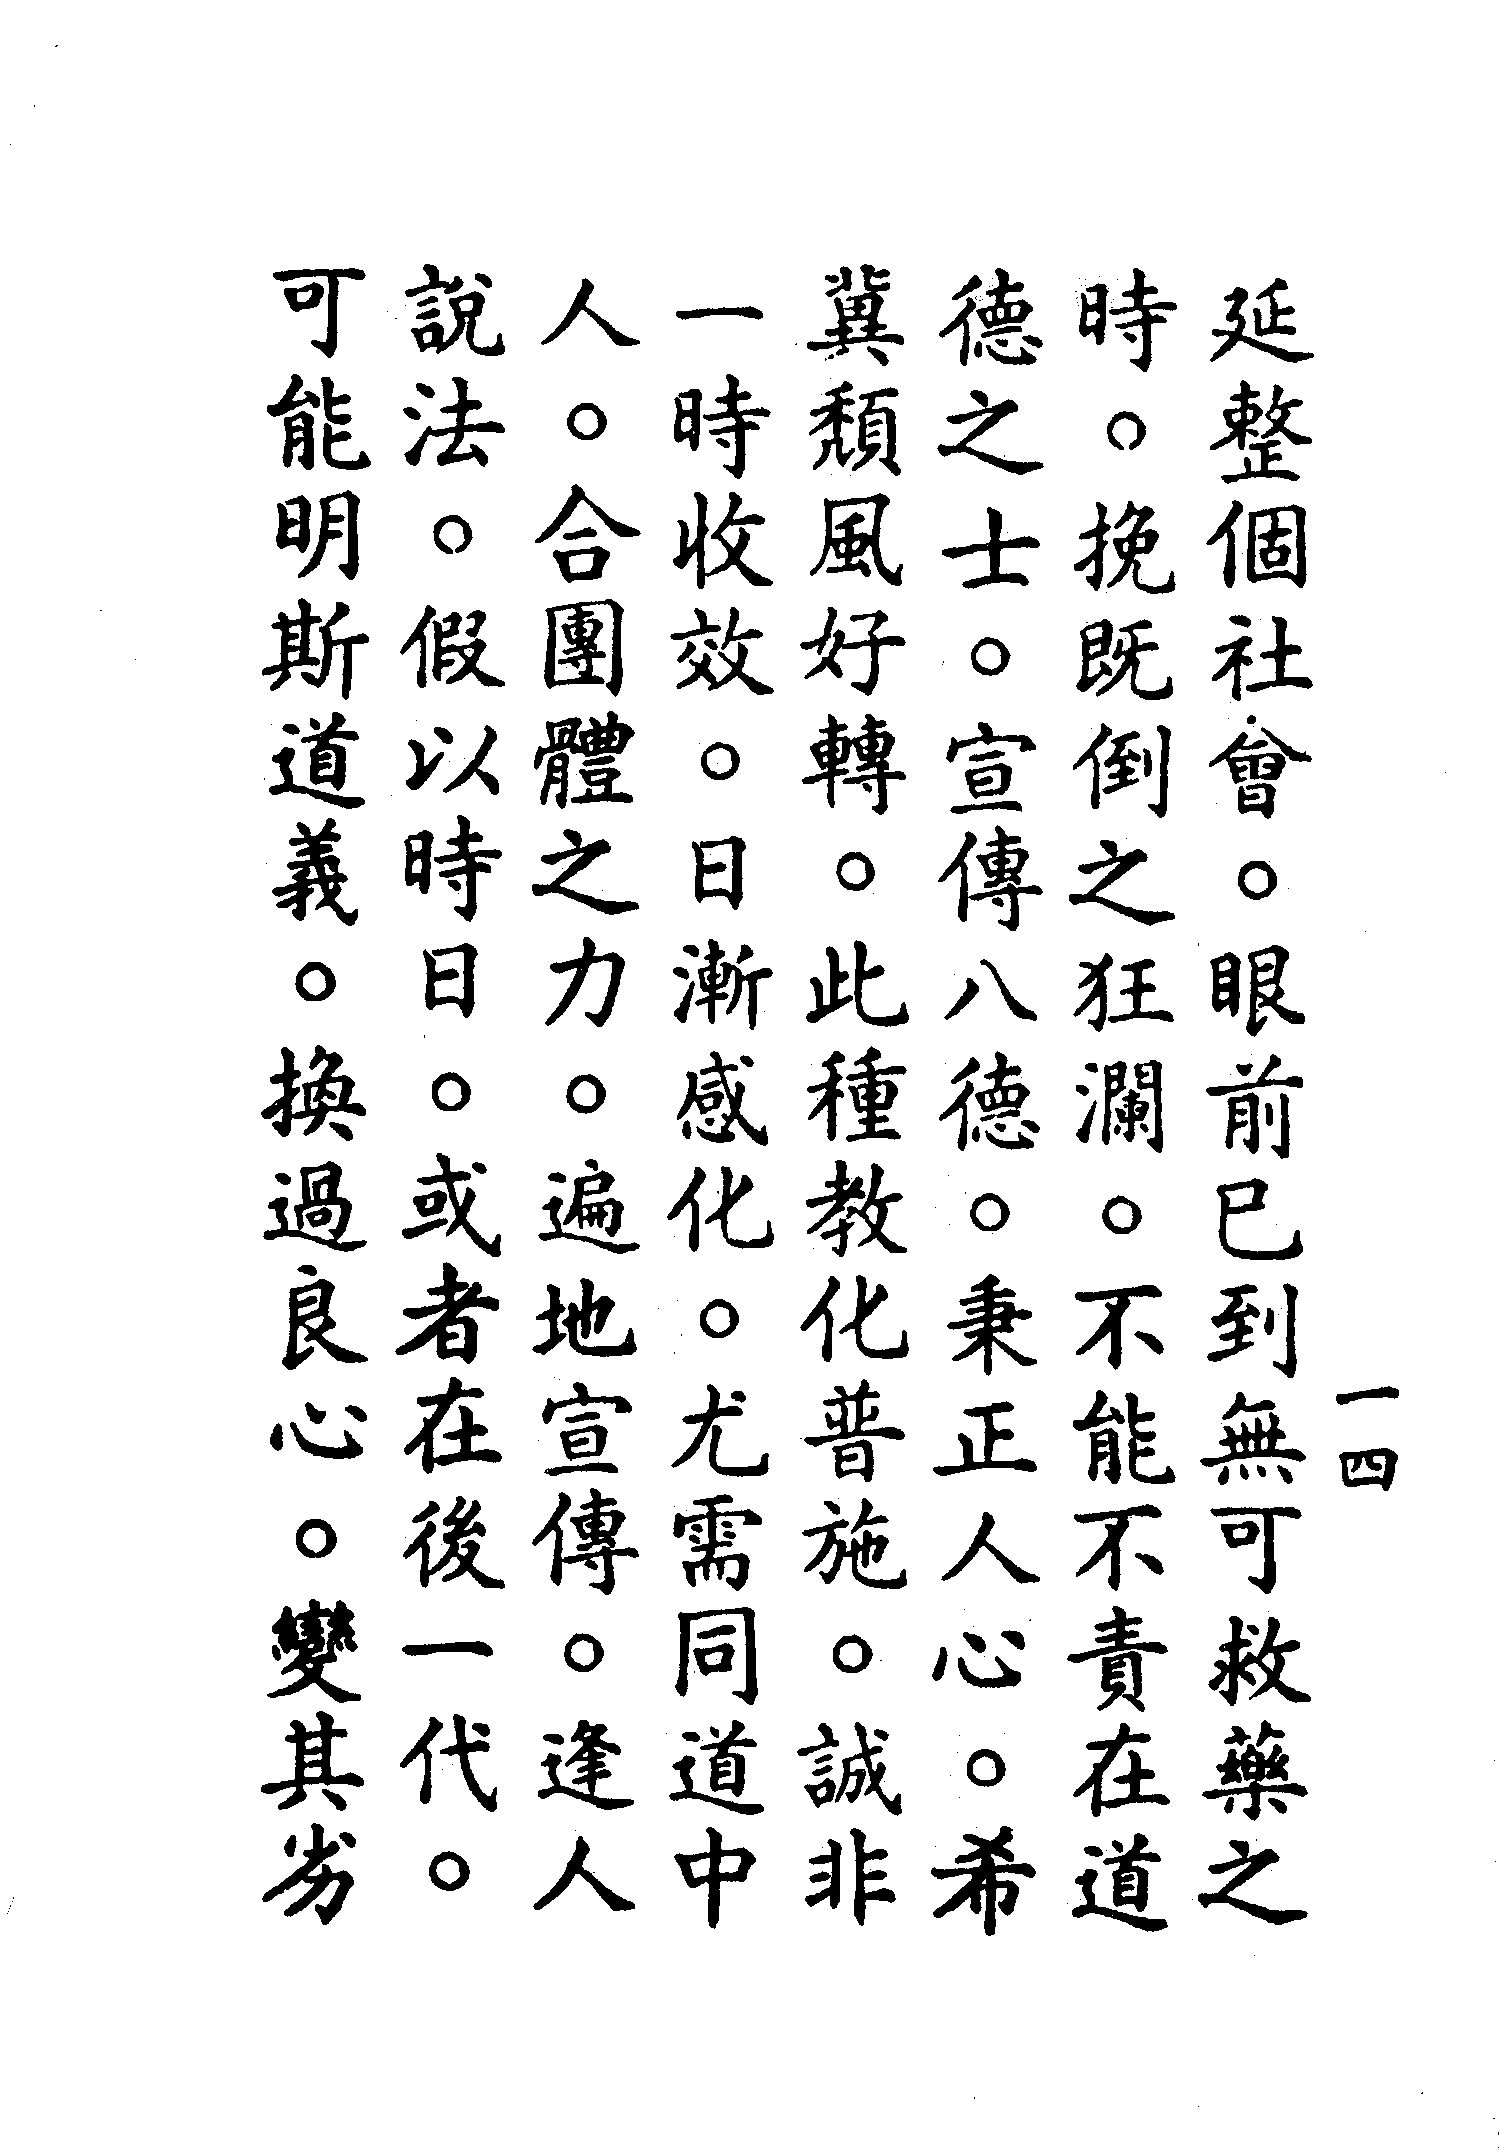 一四
延整個社會。眼前已到無可救藥之
時。挽既倒之狂瀾。不能不責在道
德之士。宣傳八德。秉正人心。希
冀頹風好轉。此種教化普施。誠非
一時收效。日漸感化。尤需同道中
人。合團體之力。遍地宣傳。逢人
說法。假以時日。或者在後一代。
可能明斯道義。換過良心。變其劣